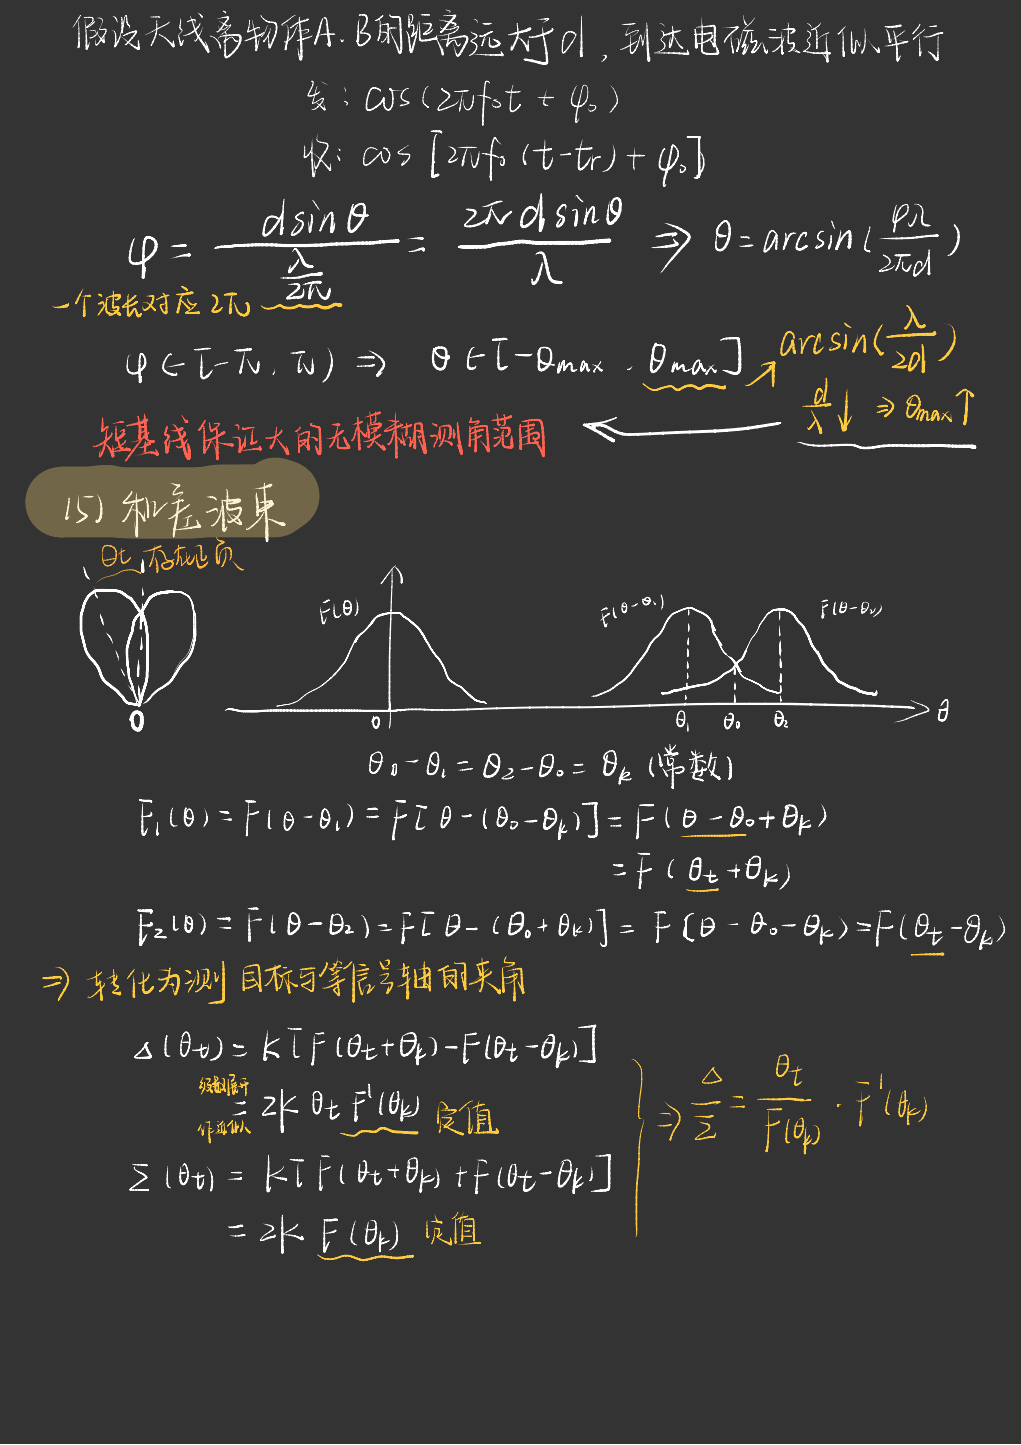 假设天线离物体A、B的距离远大于d，到达电磁波近似平行
发：cos(2πf₀t + φ₀)
收：cos[2πf₀(t-tr)+φ₀]
φ = dsinθ / (λ/2π) = 2πdsinθ / λ ⇒ θ = arcsin(φλ/2πd)
一个波长对应2π
φ∈[-π, π) ⇒ θ∈[-θmax, θmax] → arcsin(λ/2d)
d/λ↓ ⇒ θmax↑
短基线保证大的无模糊测角范围
(5) 和差波束
θt 存在正负
F(θ) F(θ-θ₁) F(θ-θ₂)
0 0 θ₁ θ₀ θ₂ θ
θ₀-θ₁=θ₂-θ₀=θk (常数)
F₁(θ)=F(θ-θ₁)=F[θ-(θ₀-θk)]=F(θ-θ₀+θk)
=F(θt+θk)
F₂(θ)=F(θ-θ₂)=F[θ-(θ₀+θk)]=F[θ-θ₀-θk)=F(θt-θk)
⇒ 转化为测目标与等信号轴的夹角
Δ(θt)=K[F(θt+θk)-F(θt-θk)]
级数展开
=2K θt F'(θk) 定值
作近似
Σ(θt)=K[F(θt+θk)+F(θt-θk)]
=2K F(θk) 定值
⇒ Δ/Σ = θt/F(θk) · F'(θk)